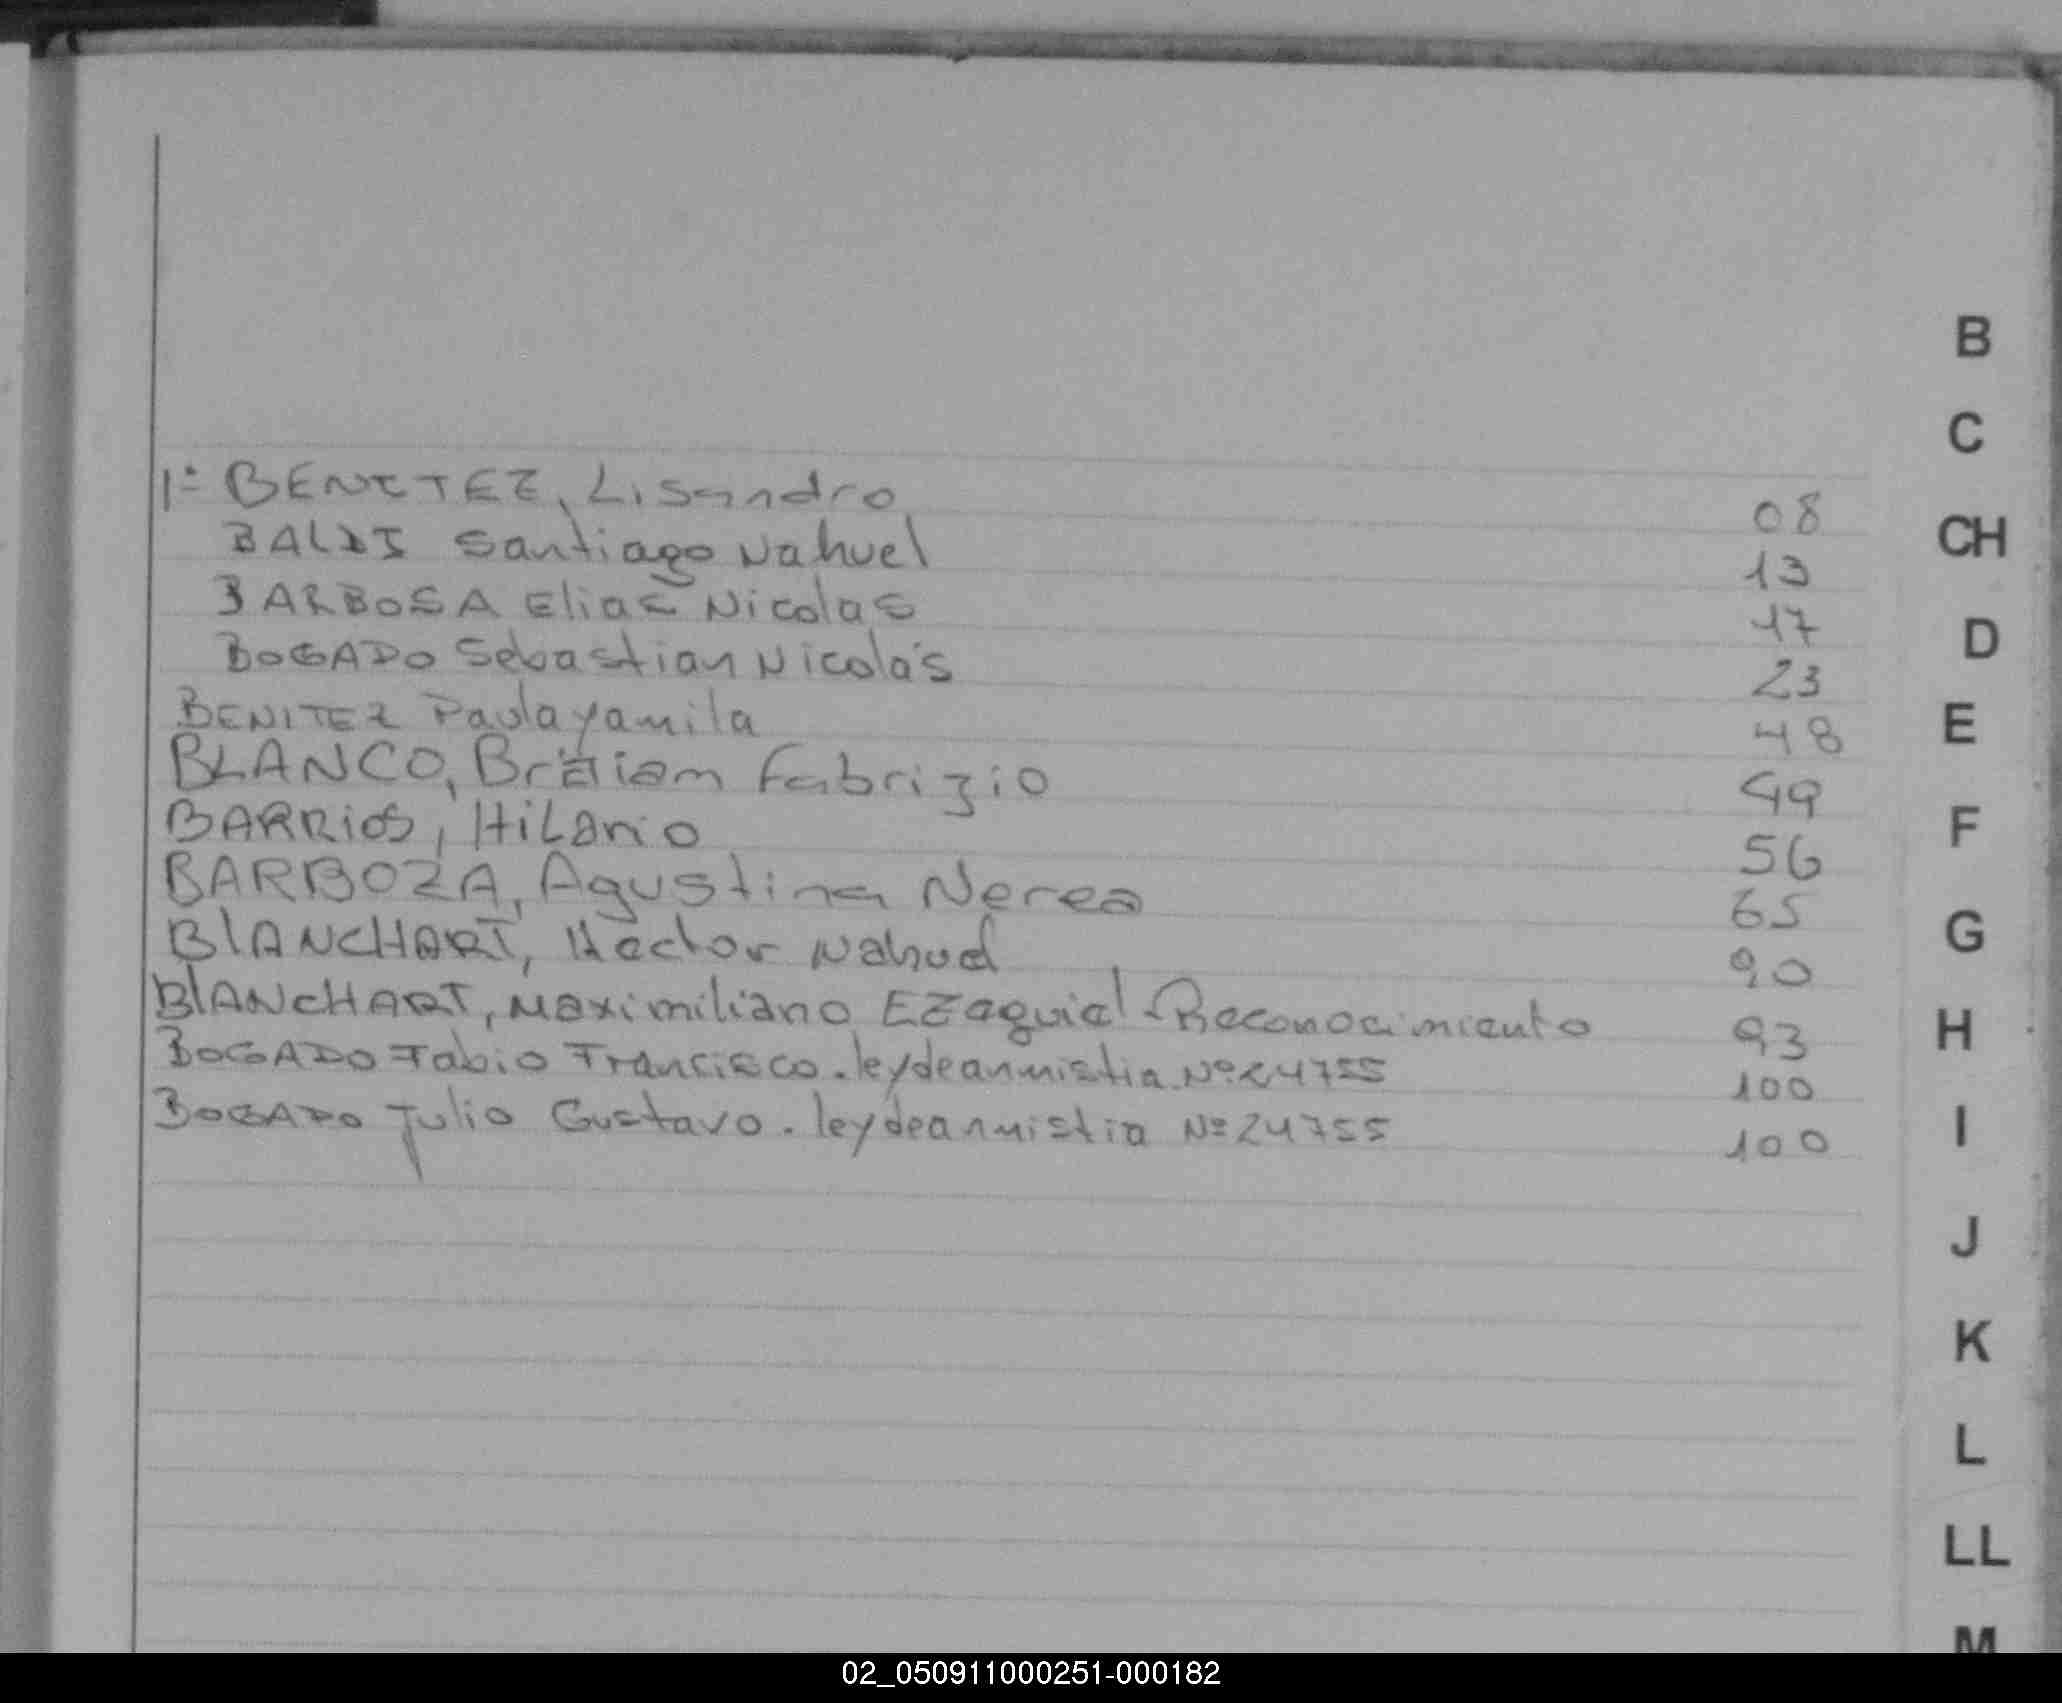 1º BENITEZ, Lisandro 08
BALDI Santiago Nahuel 13
BARBOSA Elias Nicolas 17
BOGADO Sebastian Nicolás 23
BENITEZ Paula yamila 48
BLANCO, Braiam Fabrizio 49
BARRiOS, HiLario 56
BARBOZA, Agustina Nerea 65
BlANCHART, Hector Nahuel 90
BlANCHART, Maximiliano EZequiel - Reconocimiento 93
BOGADO Fabio Francisco. ley de anmistia Nº 24755 100
BOGADO Julio Gustavo. ley de anmistia Nº 24755 100
B
C
CH
D
E
F
G
H
I
J
K
L
LL
M
02_050911000251-000182